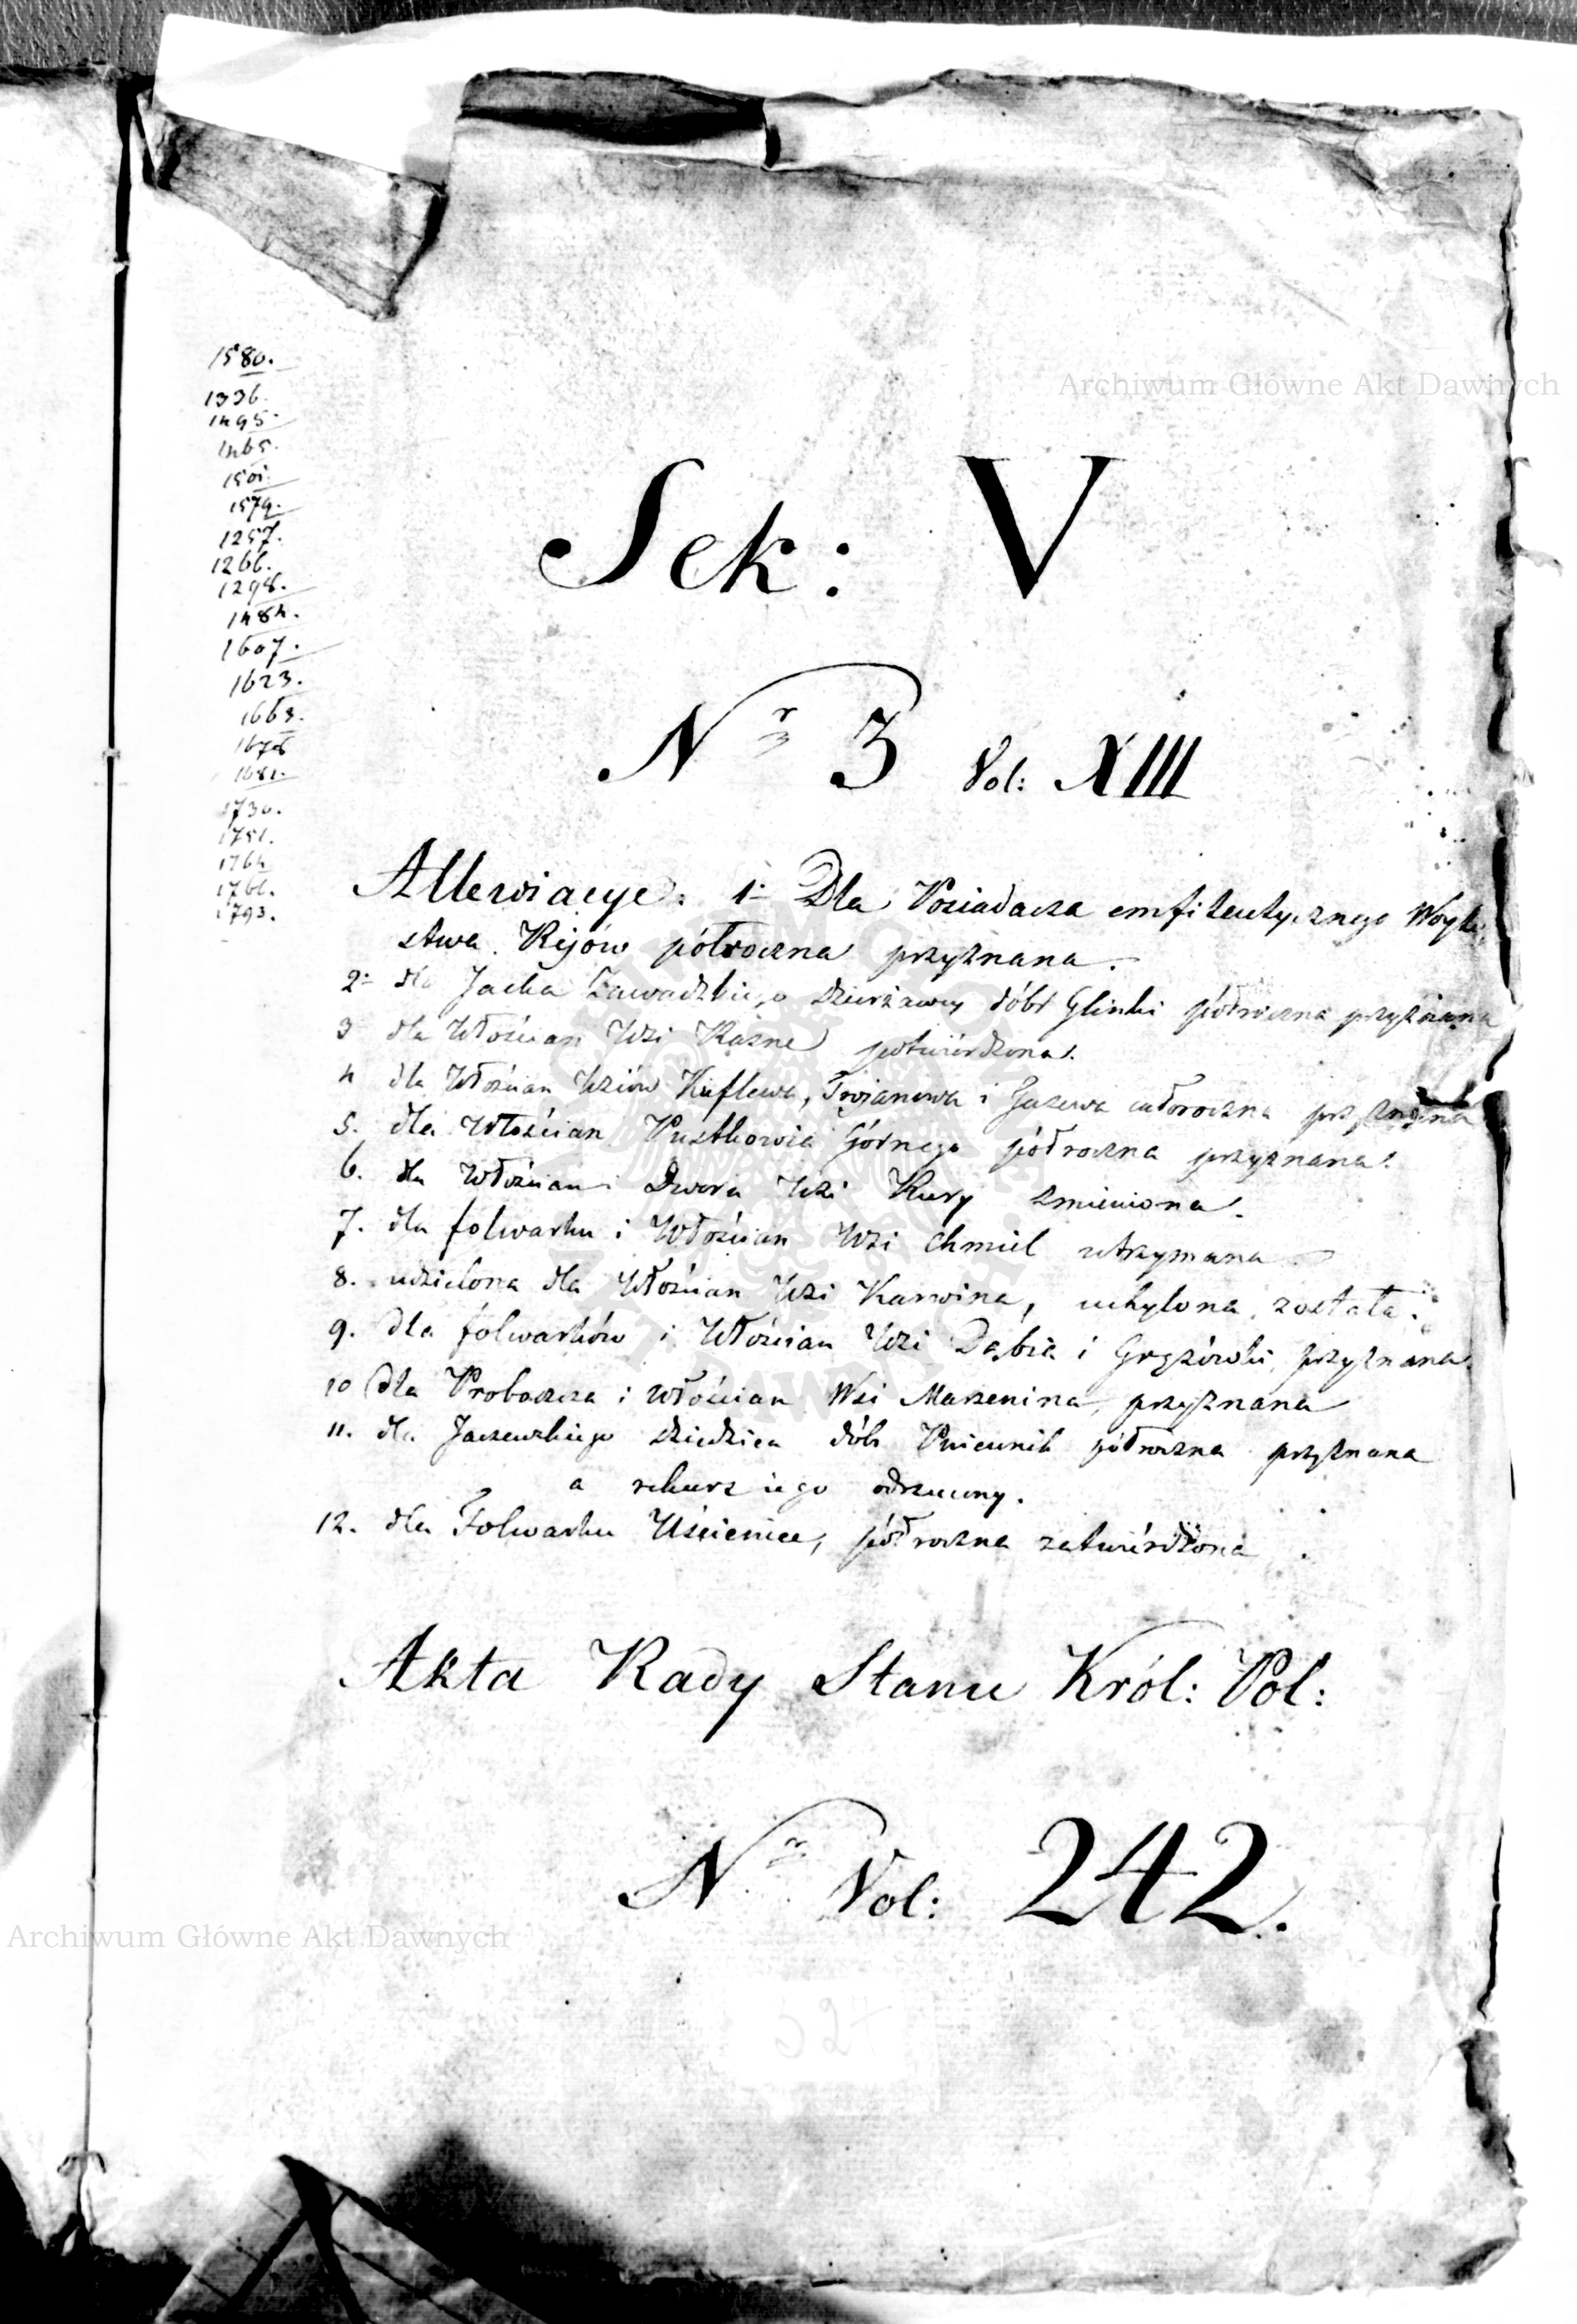 Archiwum Główne Akt Dawnych
1580.
1336.
1495.
1465.
1501.
1579.
1257.
1266.
1298.
1484.
1607.
1623.
1663.
1681.
1730.
1751.
1764
1766.
1793.
Sek: V
Nr 3 Vol: XIII
Allewiacye: 1. Dla Posiadacza emfiteutycznego Woyto
stwa Kijów półroczna przyznana.
2. dla Jacka Zawadzkiego dzierżawcy dóbr Glinki półroczna przyznana
3 dla Włościan Wsi Kaźne potwierdzona.
4 dla Włościan Wsiów Kuflewa, Trojanowa i całoroczna przyznana
5. dla Włościan Pustkowia Górnego półroczna przyznana.
6. dla Włościan i Dworu Wsi Kury zmieniona.
7. dla folwarku i Włościan Wsi Chmiel utrzymana
8. udzielona dla Włościan Wsi Karwina, uchylona została.
9. dla folwarków i Włościan Wsi Dąbia i przyznana.
10 dla Proboszcza i Włościan Wsi Marzenina, przyznana
11. dla Jaczewskiego dziedzica dób Pniewnik półroczna przyznana
a rekurs iego odrzucony.
12. dla Folwarku Uścieniec, półroczna zatwierdzona.
Akta Rady Stanu Król: Pol:
Nr Vol: 242.
Archiwum Główne Akt Dawnych